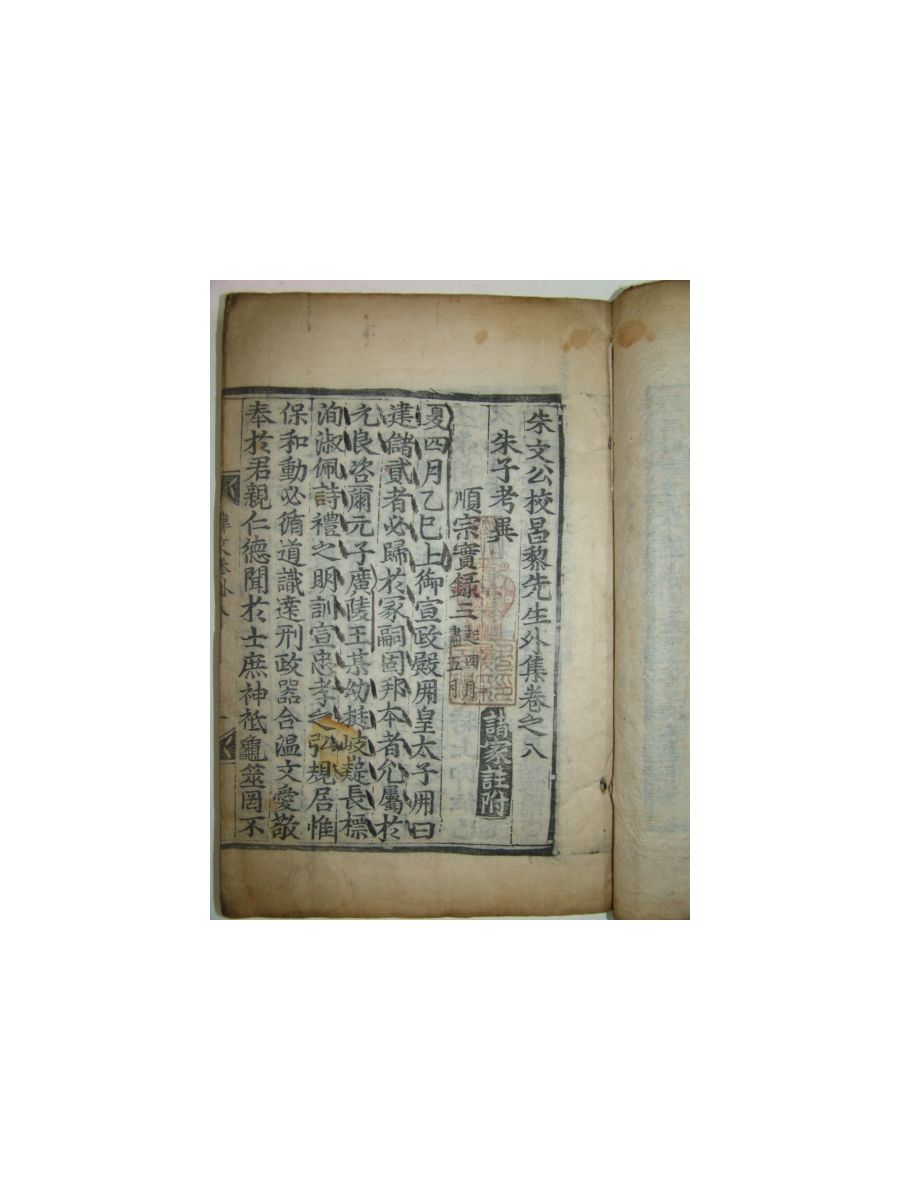 朱文公校昌黎先生外集卷之八
朱子考異 諸家註附
順宗實錄三 起四月盡五月
夏四月乙巳上御宣政殿冊皇太子冊曰
建儲貳者必歸於冢嗣固邦本者允屬於
元良咨爾元子廣陵王某幼挺岐嶷長標
洵淑佩詩禮之明訓宣忠孝之弘規居惟
保和動必循道識達刑政器合溫文愛敬
奉於君親仁德聞於士庶神祇龜筮罔不
韓文卷外八